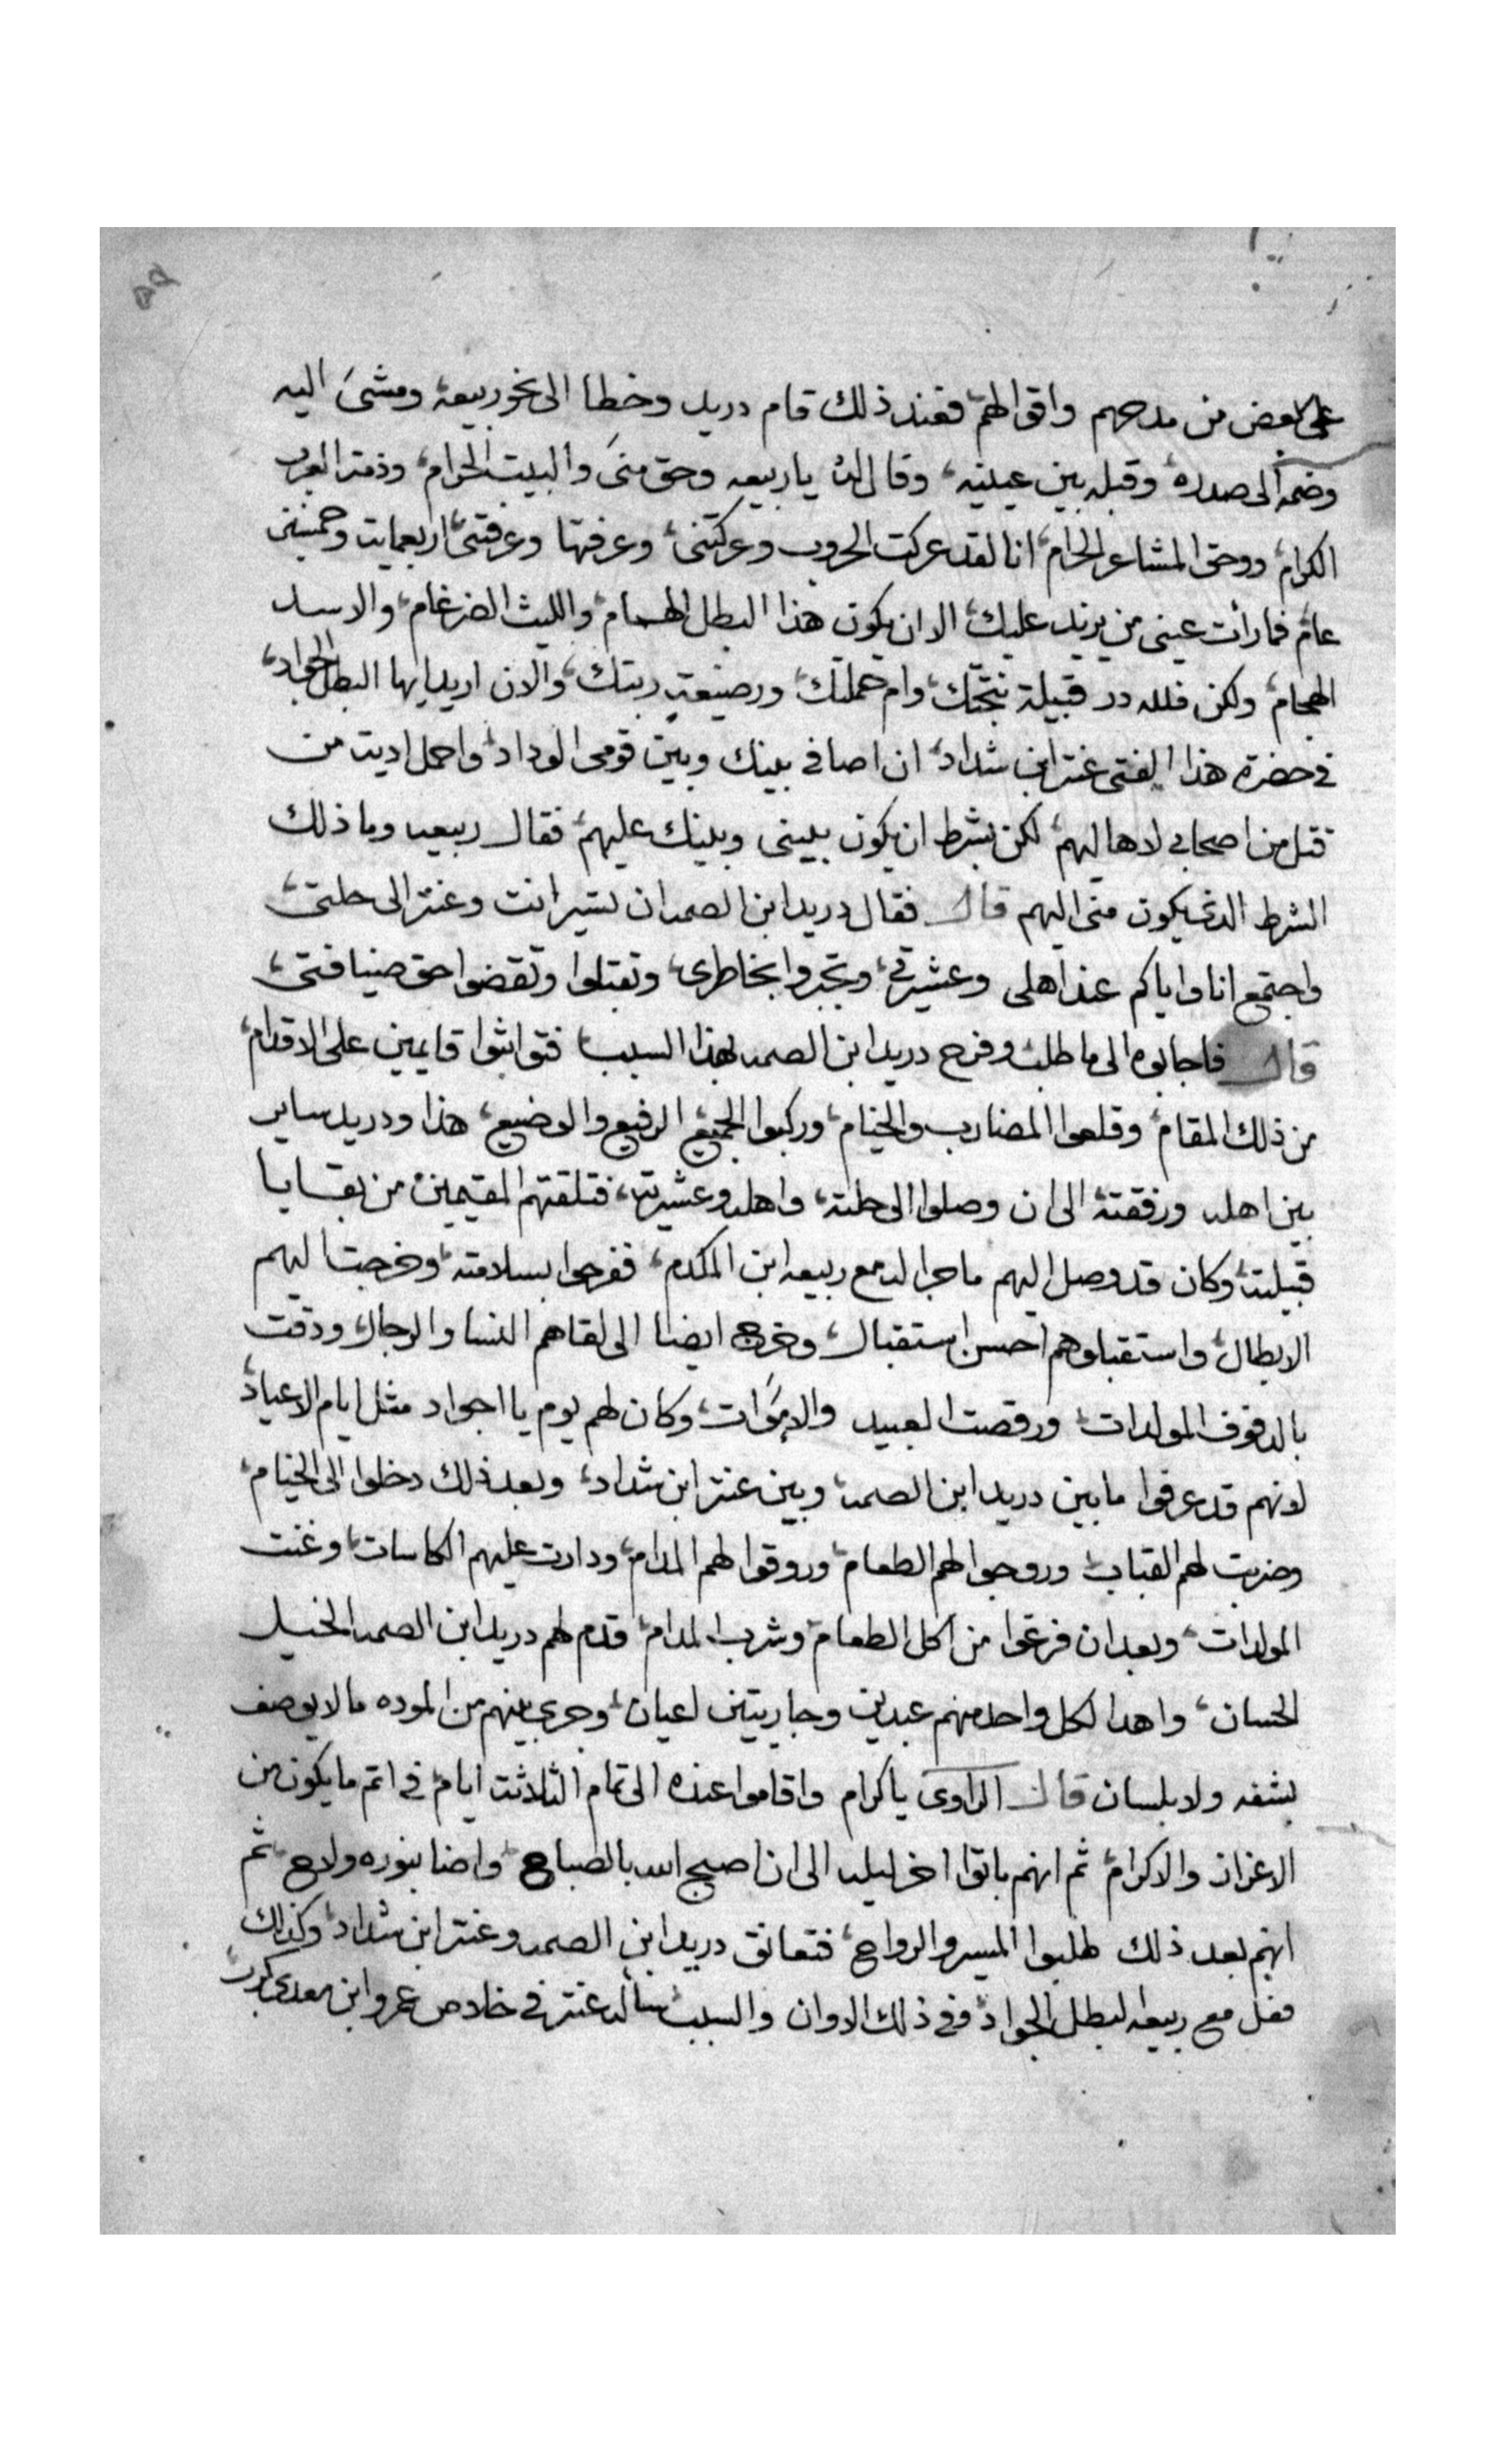 على بعض من مدحهم واقوالهم فعند ذلك قام دريد وخطا الى نحو ربيعة ومشى اليه
وضمه الى صدره وقبله بين عينيه وقال له يا ربيعه وحق منى والبيت الحرام وذمة العرب
الكرام ووحق المشاعر الحرام انا لقد عركت الحروب وعركتنى وعرفتها وعرفتنى اربعمايت وخمسين
عام فما رأت عينى من يزيد عليك الا ان يكون هذا البطل الهمام والليث الضرغام والاسد
الهجام ولكن فلله در قبيلة نتجتك وام حملتك ورضيعة ربتك والان اريد ايها البطل الجواد
فى حضرة هذا الفتى عنتر ابن شداد ان اصافى بينك وبين قومى الوداد واحمل اديت من
قتل من اصحابى لاهاليهم لكن بشرط ان يكون بينى وبينك عليهم فقال ربيعه وما ذلك
الشرط الدى يكون منى اليهم قال فقال دريد ابن الصمه ان تسير انت وعنتر الى حلتى
واجتمع انا واياكم عند اهلى وعشيرتى وتجبروا بخاطرى وتقبلوا وتقضوا حق ضيافتى
قال فاجابوه الى ما طلب وفرح دريد ابن الصمه بهذا السبب فتواثبوا قايمين على الاقدام
من ذلك المقام وقلعوا المضارب والخيام وركبوا الجميع الرفيع والوضيع هذا ودريد ساير
بين اهله ورفقته الى ان وصلوا الى حلته واهله وعشيرته فتلقتهم المقيمين من بقايا
قبيلته وكان قد وصل اليهم ما جرا له مع ربيعه ابن المكدم ففرحوا بسلامته وخرجت اليهم
الابطال واستقبلوهم احسن استقبال وخرج ايضا الى لقاهم النسا والرجال ودقت
بالدفوف المولدات ورقصت العبيد والاموات وكان لهم يوم يا اجواد مثل ايام الاعياد
لانهم قد عرفوا ما بين دريد ابن الصمه وبين عنتر ابن شداد وبعد ذلك دخلوا الى الخيام
وضربت لهم القباب وروجوا لهم الطعام وروقوا لهم المدام ودارت عليهم الكاسات وغنت
المولدات وبعد ان فرغوا من اكل الطعام وشرب المدام قدم لهم دريد ابن الصمه الخيل
الحسان واهدا لكل واحد منهم عبدين وجاريتين اعيان وجرى بينهم من الموده ما لا يوصف
بشفه ولا بلسان قال الراوى يا كرام واقاموا عنده الى تمام الثلاثت ايام فى اتم ما يكون من
الاعزاز والاكرام ثم انهم باتوا اخر ليله الى ان اصبح الله بالصباح واضا بنوره ولاح ثم
انهم بعد ذلك طلبوا المسير والرواح فتعانق دريد ابن الصمه وعنتر ابن شداد وكذلك
فعل مع ربيعه البطل الجواد وفى ذلك الاوان والسبب سأله عنتر فى خلاص عمرو ابن معدى كرب